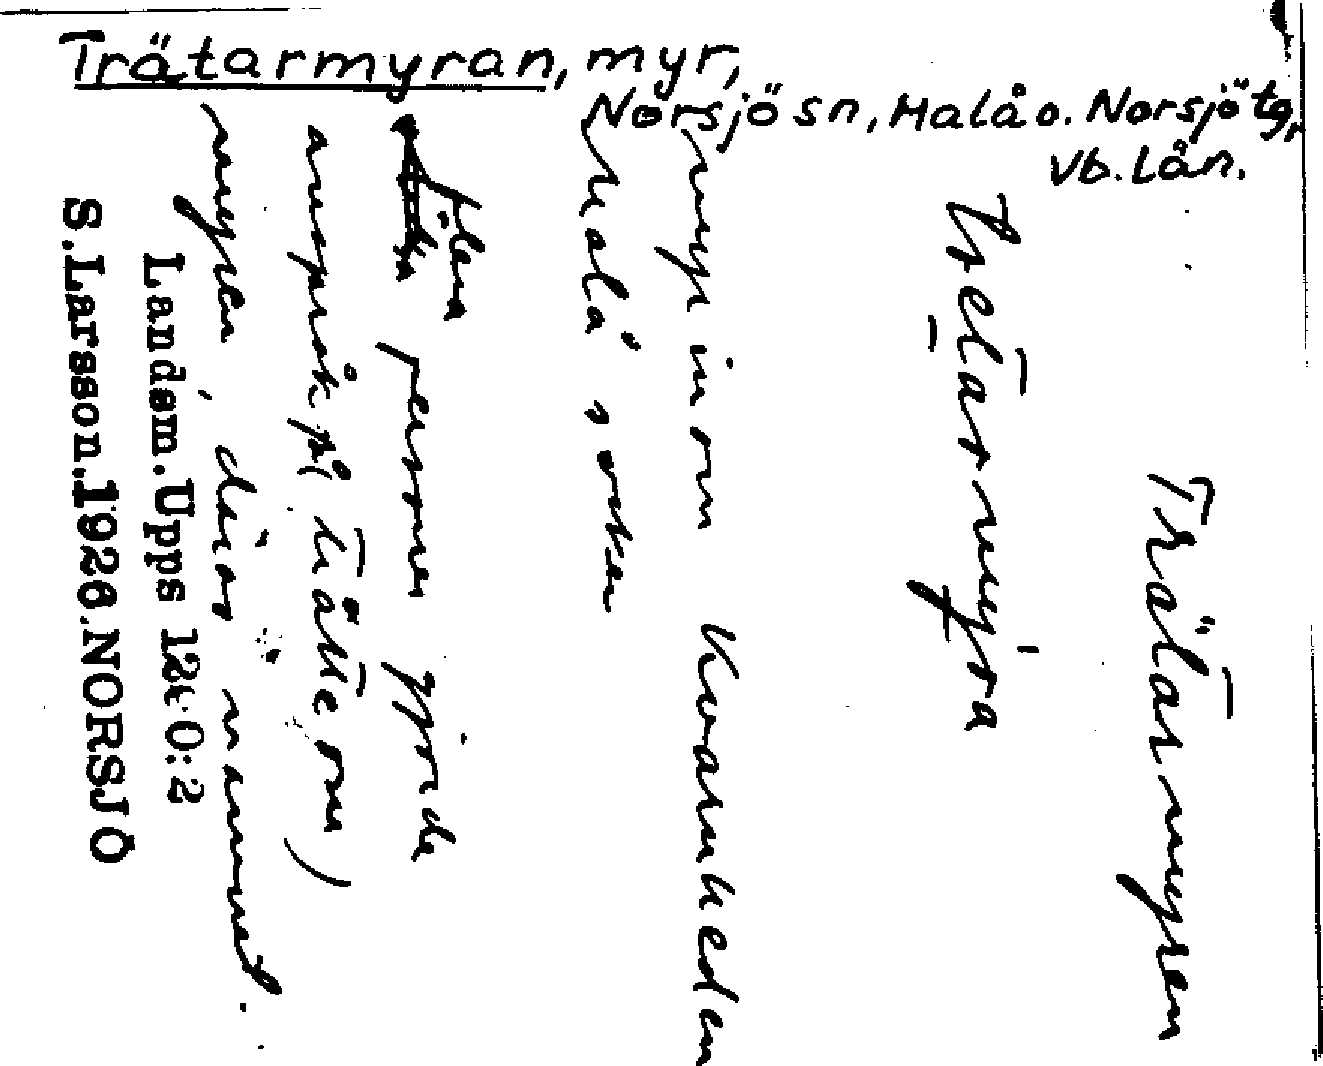 Trätarmyran, myr,
Norsjö sn, Malå o. Norsjö tg,
Vb. län.
Trätarmyren
tretarmyra
myr inom Kvarnheden
Malå socken
flera personer gjorde
anspråk på (trätte om)
myren, därav namnet.
Landsm. Upps 120:2
S. Larsson. 1926. NORSJÖ